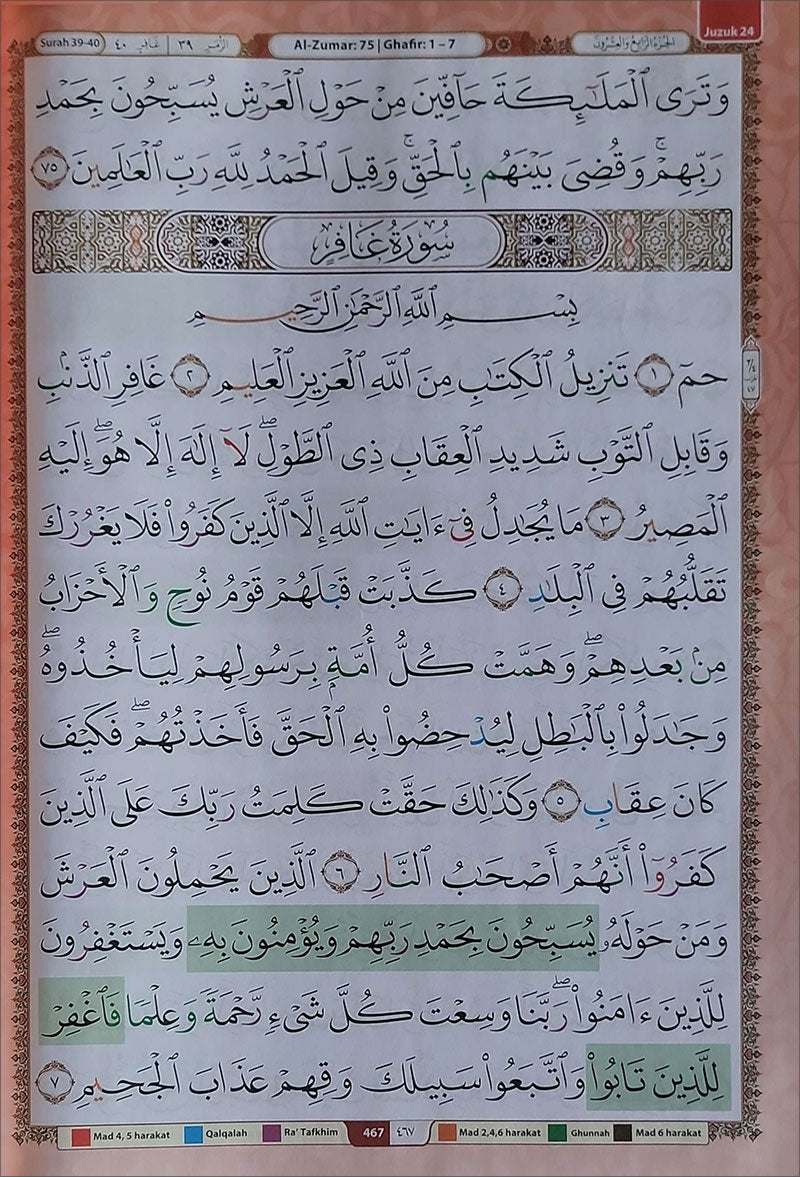 Juzuk 24
Surah 39-40 الزُّمَر ٣٩ | غَافِر ٤٠ Al-Zumar: 75 | Ghafir: 1 – 7 الجُزءُ الرَّابِعُ وَالعِشْرُونَ
وَتَرَى ٱلْمَلَٰٓئِكَةَ حَآفِّينَ مِنْ حَوْلِ ٱلْعَرْشِ يُسَبِّحُونَ بِحَمْدِ
رَبِّهِمْ ۖ وَقُضِىَ بَيْنَهُم بِٱلْحَقِّ ۚ وَقِيلَ ٱلْحَمْدُ لِلَّهِ رَبِّ ٱلْعَٰلَمِينَ ٧٥
سُورَةُ غَافِرٍ
بِسْمِ ٱللَّهِ ٱلرَّحْمَٰنِ ٱلرَّحِيمِ
حمٓ ١ تَنزِيلُ ٱلْكِتَٰبِ مِنَ ٱللَّهِ ٱلْعَزِيزِ ٱلْعَلِيمِ ٢ غَافِرِ ٱلذَّنۢبِ
وَقَابِلِ ٱلتَّوْبِ شَدِيدِ ٱلْعِقَابِ ذِى ٱلطَّوْلِ ۖ لَآ إِلَٰهَ إِلَّا هُوَ ۖ إِلَيْهِ
ٱلْمَصِيرُ ٣ مَا يُجَٰدِلُ فِىٓ ءَايَٰتِ ٱللَّهِ إِلَّا ٱلَّذِينَ كَفَرُوا۟ فَلَا يَغْرُرْكَ
تَقَلُّبُهُمْ فِى ٱلْبِلَٰدِ ٤ كَذَّبَتْ قَبْلَهُمْ قَوْمُ نُوحٍ وَٱلْأَحْزَابُ
مِنۢ بَعْدِهِمْ ۖ وَهَمَّتْ كُلُّ أُمَّةٍۭ بِرَسُولِهِمْ لِيَأْخُذُوهُ ۖ
وَجَٰدَلُوا۟ بِٱلْبَٰطِلِ لِيُدْحِضُوا۟ بِهِ ٱلْحَقَّ فَأَخَذْتُهُمْ ۖ فَكَيْفَ
كَانَ عِقَابِ ٥ وَكَذَٰلِكَ حَقَّتْ كَلِمَتُ رَبِّكَ عَلَى ٱلَّذِينَ
كَفَرُوٓا۟ أَنَّهُمْ أَصْحَٰبُ ٱلنَّارِ ٦ ٱلَّذِينَ يَحْمِلُونَ ٱلْعَرْشَ
وَمَنْ حَوْلَهُۥ يُسَبِّحُونَ بِحَمْدِ رَبِّهِمْ وَيُؤْمِنُونَ بِهِۦ وَيَسْتَغْفِرُونَ
لِلَّذِينَ ءَامَنُوا۟ ۖ رَبَّنَا وَسِعْتَ كُلَّ شَىْءٍ رَّحْمَةً وَعِلْمًا فَٱغْفِرْ
لِلَّذِينَ تَابُوا۟ وَٱتَّبَعُوا۟ سَبِيلَكَ وَقِهِمْ عَذَابَ ٱلْجَحِيمِ ٧
Mad 4, 5 harakat Qalqalah Ra’ Tafkhim 467 ٤٦٧ Mad 2,4,6 harakat Ghunnah Mad 6 harakat